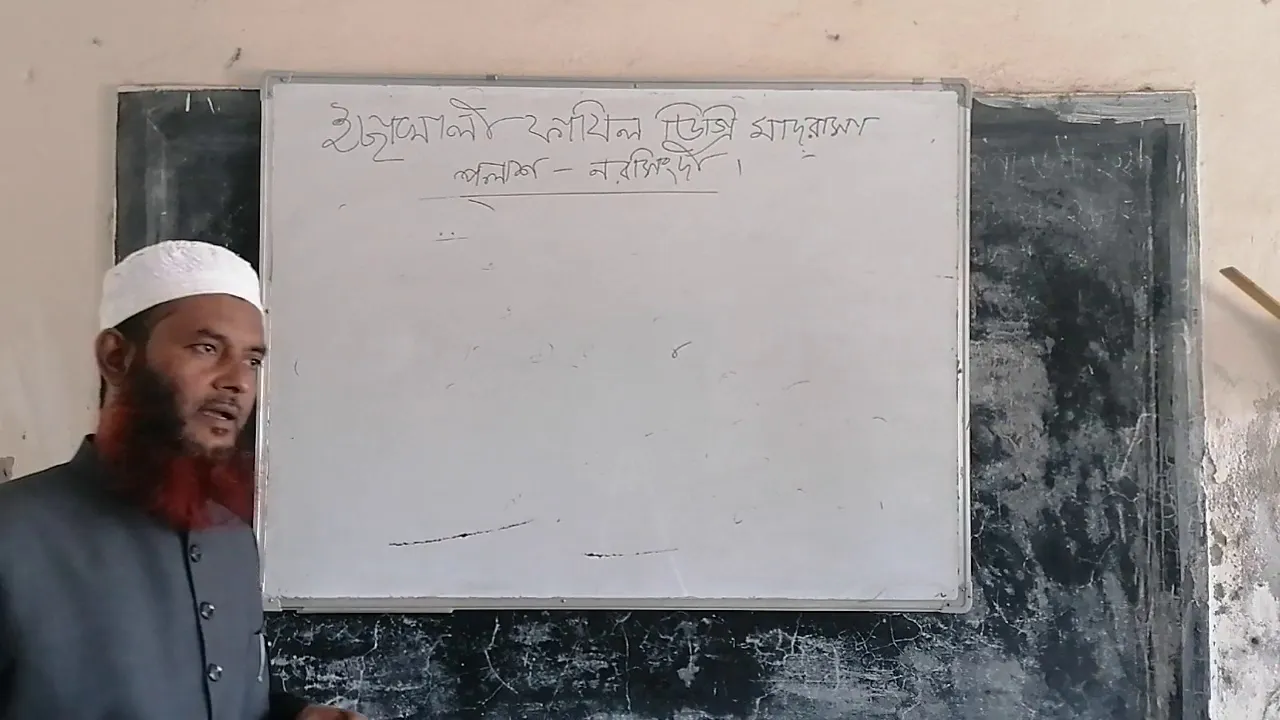 ইছাখালী ফাযিল ডিগ্রি মাদ্রাসা
পলাশ – নরসিংদী।